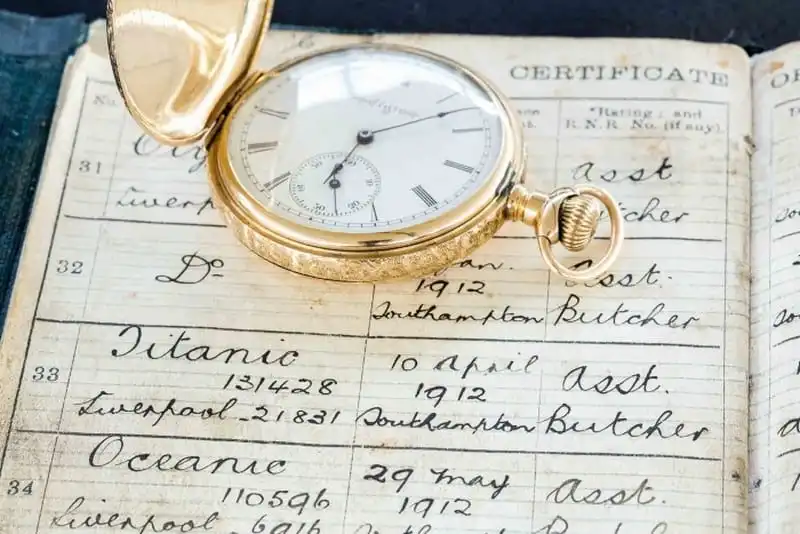 CERTIFICATE
No.
*Rating; and
R.N.R. No. (if any).
31
Asst
Liverp
Butcher
32
Do
1912
Asst.
Southampton
Butcher
33
Titanic
131428
Liverpool - 21831
10 April
1912
Southampton
Asst.
Butcher
34
Oceanic
110596
Liverpool
29 May
1912
Asst.